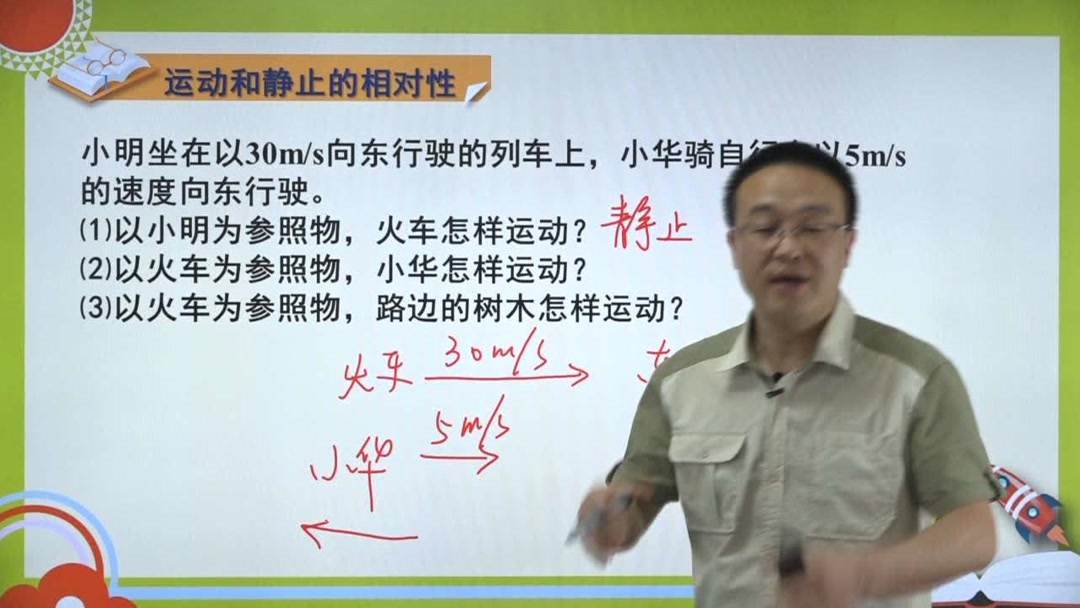 运动和静止的相对性
小明坐在以30m/s向东行驶的列车上，小华骑自行 以5m/s
的速度向东行驶。
(1)以小明为参照物，火车怎样运动？ 静止
(2)以火车为参照物，小华怎样运动？
(3)以火车为参照物，路边的树木怎样运动？
火车 30m/s
小华 5m/s